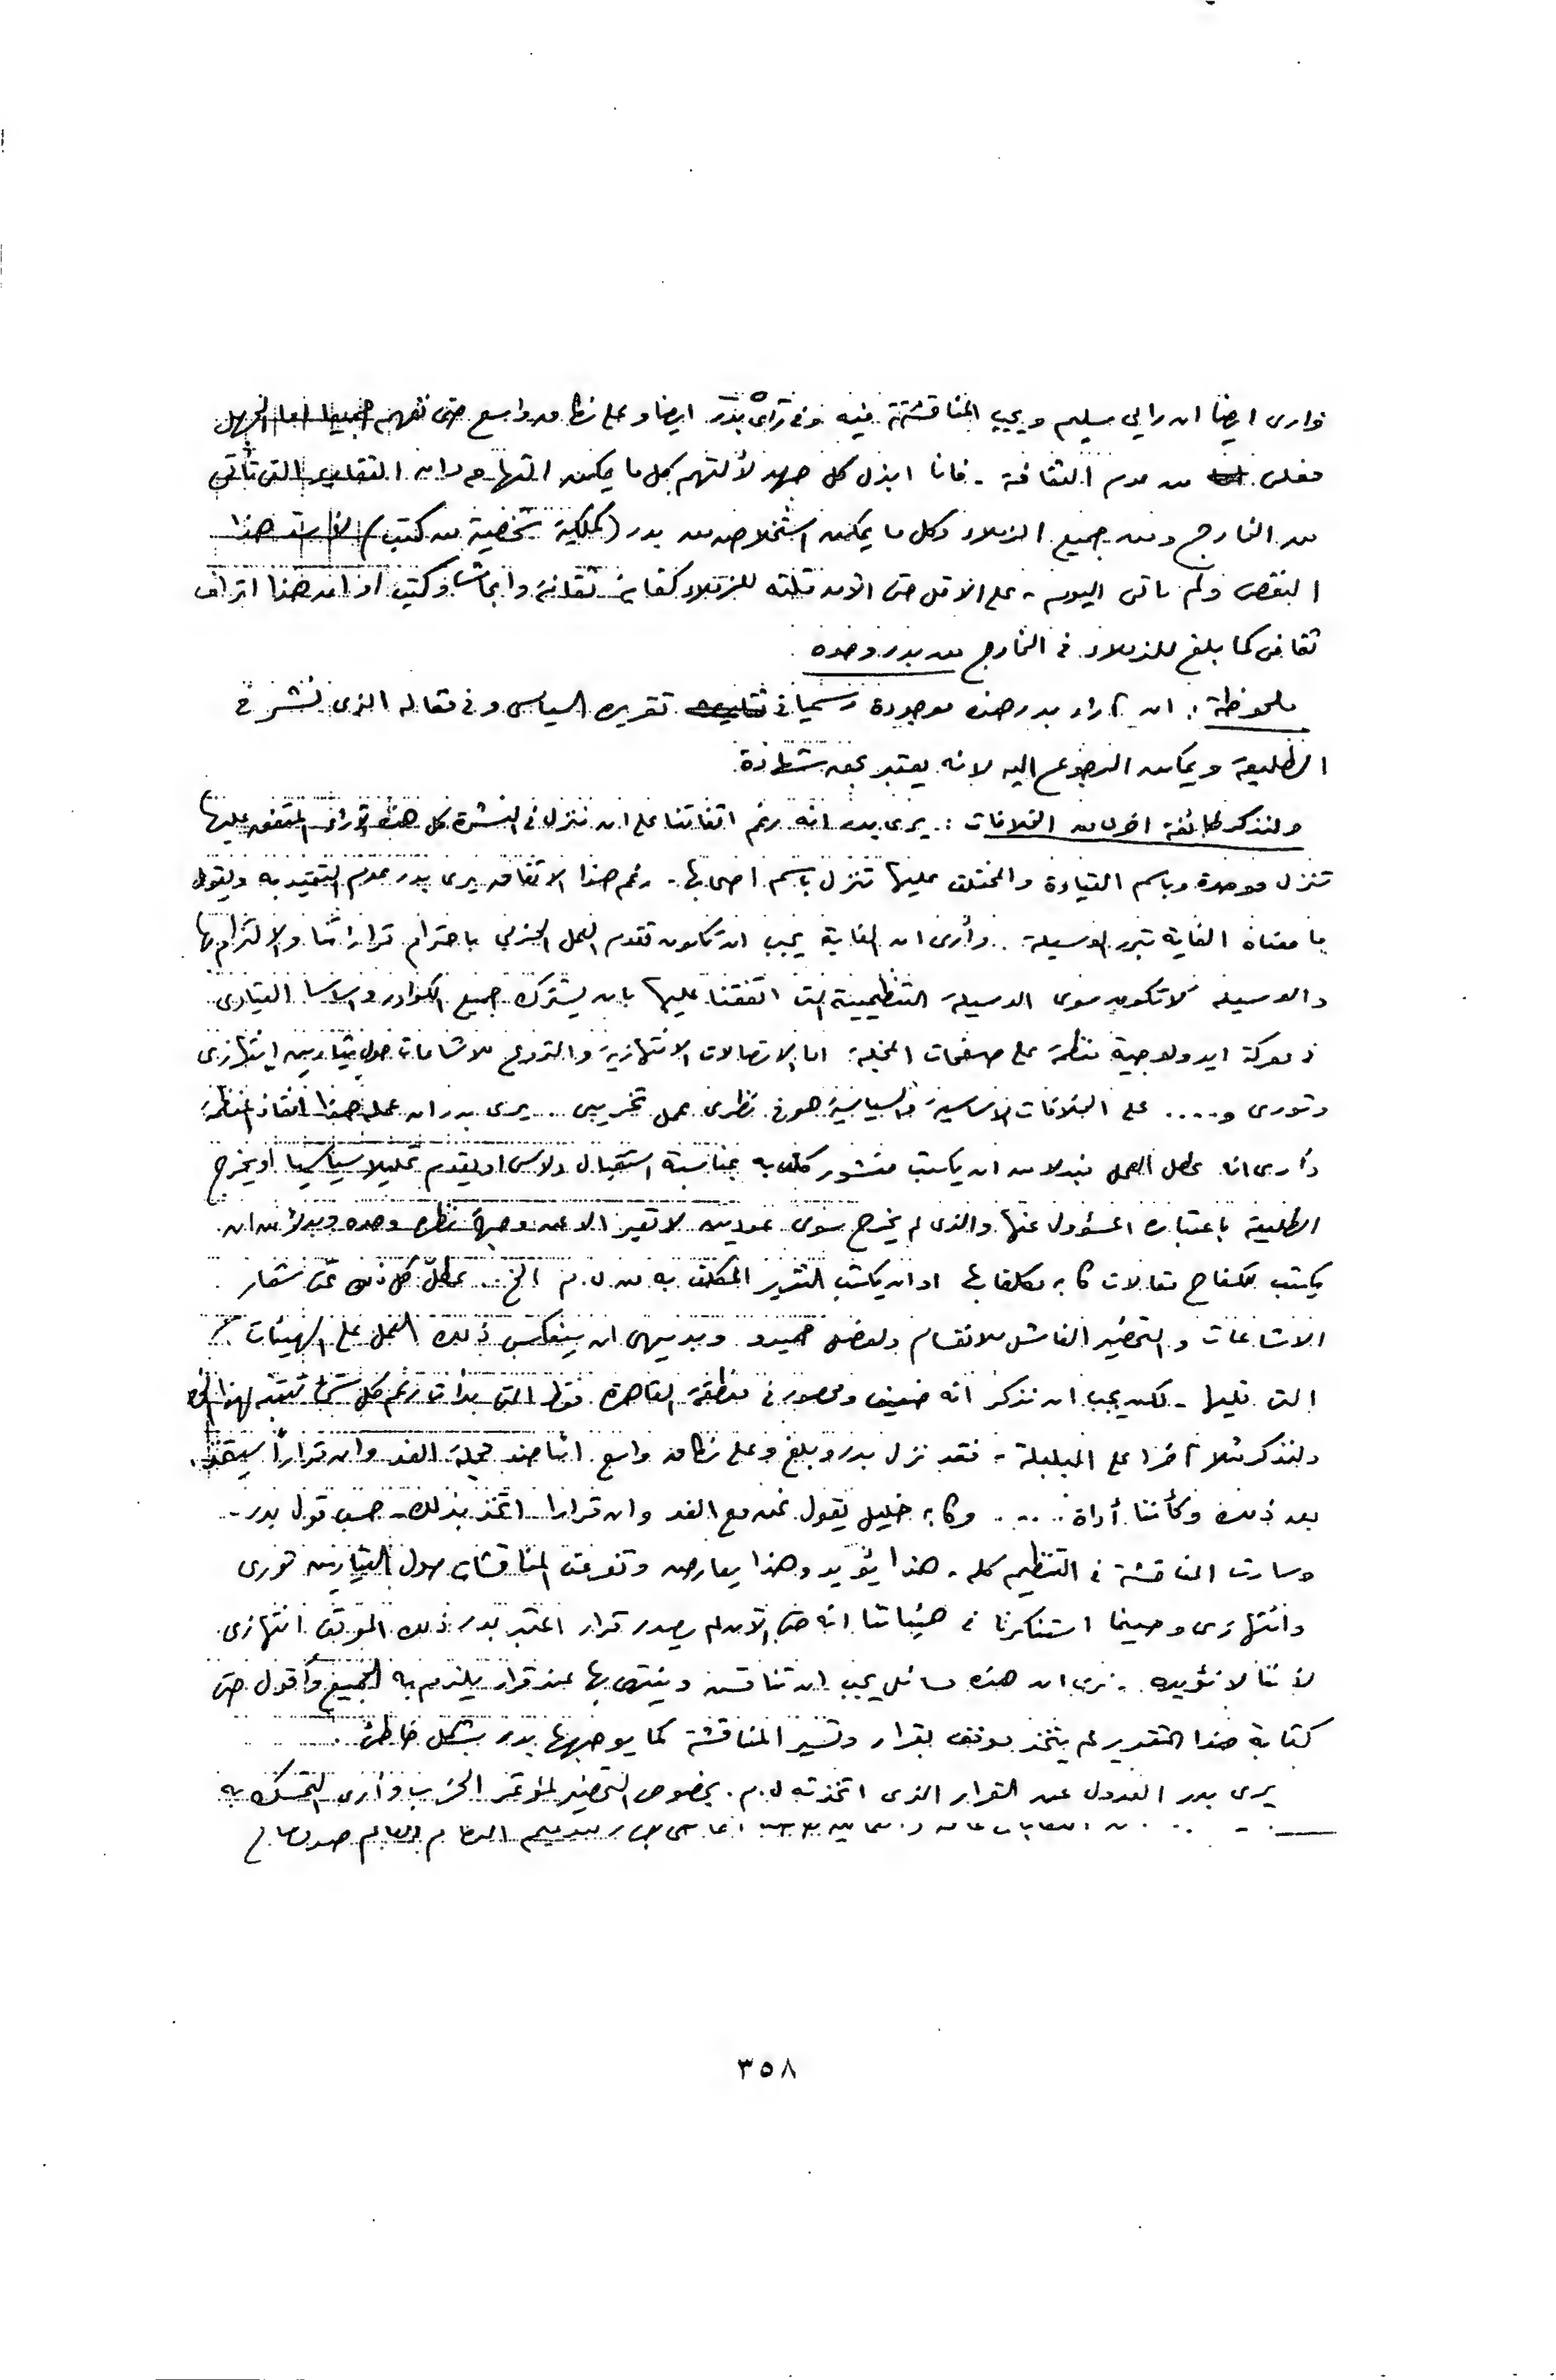 وارى ايضا ان رايى سليم ويجب المناقشة فيه وفى رأى بدر ايضا وعلى نطاق واسع حتى نفهم جميعا اما الجهل
من عدم الثقافة - فانا ابذل كل جهد لألتهم كل ما يمكن التهامه وان التقارير التى تأتى
من الخارج ومن جميع الزملاء وكل ما يمكن استخلاصه من بدر (كملكية شخصية من كتب) هذا
النقص ولم يأتى اليوم - على الاقل حتى الآن قلته للزملاء كفاية ثقافة وابحاث وكتب اذ ان هذا اتراف
ثقافى كما بلغ للزملاء فى الخارج من بدر وحده .
ملحوظة : ان آراء بدر هذه موجودة رسميا فى تقريره السياسى وفى مقاله الذى نشر فى
الطليعة ويمكن الرجوع اليه لانه يعتبر بحق
ولنذكر طائفة اخرى من الخلافات : يرى بدر انه رغم اتفاقنا على ان ننزل فى النشرة كل هذه الآراء المتفق عليها
تنزل موحدة وباسم القيادة والمختلف عليها تنزل باسم اصحابها - رغم هذا الاتفاق يرى بدر عدم التقيد به ويقول
ما معناه الغاية تبرر الوسيلة .. وأرى ان الغاية يجب ان تكون تقدم العمل الحزبى باحترام قراراتنا والالتزام بها
والوسيلة لا تكون سوى الوسيلة التنظيمية التى اتفقنا عليها بان يشترك جميع الكوادر واساسا القيادى
فى معركة ايدولوجية منظمة على صفحات المجلة اما الاتصالات الانتهازية والترويج للاشاعات حول تيارين انتهازى
وثورى و..... على الخلافات الاساسية والسياسية هو فى نظرى عمل تخريبى ... يرى بدر ان عمله هذا انقاذ المنظمة
وأرى انه عطل العمل فبدلا من ان يكتب منشور كلف به بمناسبة استقبال دلاس او يقدم تحليلا سياسيا او يخرج
الطليعة باعتباره المسؤول عنها والذى لم يخرج سوى عددين لا تعبر الا عن وجهة نظره وحده وبدلا من ان
يكتب للكفاح مقالات كان مكلفا بها او ان يكتب التقرير المكلف به من ل.م الخ... عطل كل ذلك تحت شعار
الاشاعات والتحضير الفاشل للانقسام ولفصل حميدو وبديهى ان ينعكس ذلك العمل على الهيئات
التى تليها - لكن يجب ان نذكر انه ضعيف ومحصور فى منطقة القاهرة فقط التى بدأت رغم كل شئ تتنبه لهذا
ولنذكر مثلا آخرا على البلبلة - فقد نزل بدر وبلغ وعلى نطاق واسع اننا ضد مجلة الغد وان قرارا سيتخذ
بعد ذلك وكأننا أداة .... وكان خليل يقول نحن مع الغد وان قرارا اتخذ بذلك - حسب قول بدر -
وسارت المناقشة فى التنظيم كله - هذا يؤيد وهذا يعارض وتفرعت المناقشات حول التيارين ثورى
وانتهازى وحينما استنكرنا فى هيئاتنا انه حتى الآن لم يصدر قرار اعتبر بدر ذلك الموقف انتهازى
لأننا لا نؤيده . نرى ان هذه مسائل يجب ان تناقش وينتهى بها عند قرار يلتزم به الجميع وأقول حتى
كتابة هذا التقرير لم يتخذ موقف بقرار وتسير المناقشة كما يوجهها بدر بشكل خاطئ .
يرى بدر العدول عن القرار الذى اتخذته ل.م. بخصوص التحضير لمؤتمر الحزب وأرى التمسك به
٣٥٨